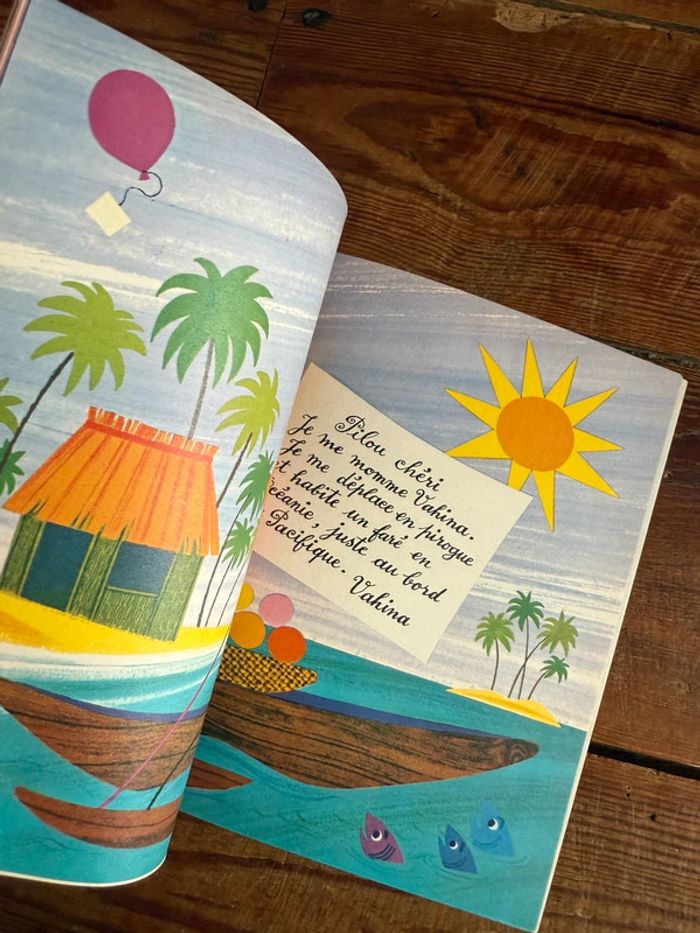 Pilou chéri
Je me nomme Vahina.
Je me déplace en pirogue
et habite un faré en
Océanie, juste au bord
Pacifique. Vahina